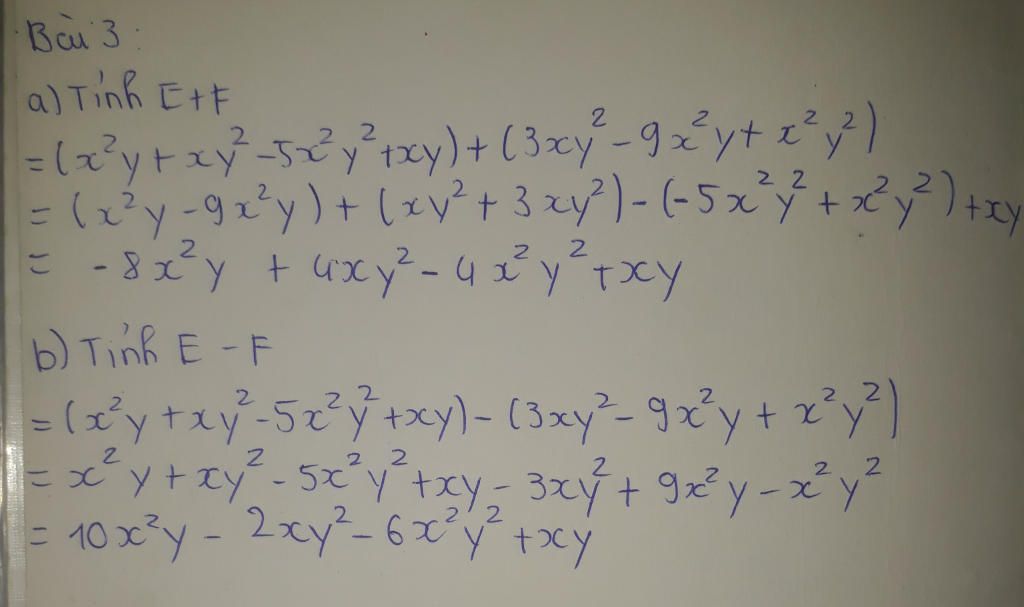 Bài 3:
a) Tính E+F
= (x²y + xy² - 5x²y² + xy) + (3xy² - 9x²y + x²y²)
= (x²y - 9x²y) + (xy² + 3xy²) - (-5x²y² + x²y²) + xy
= -8x²y + 4xy² - 4x²y² + xy
b) Tính E - F
= (x²y + xy² - 5x²y² + xy) - (3xy² - 9x²y + x²y²)
= x²y + xy² - 5x²y² + xy - 3xy² + 9x²y - x²y²
= 10x²y - 2xy² - 6x²y² + xy